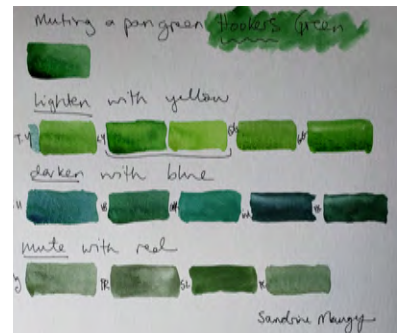 Muting a pan green Hookers Green
Lighten with yellow
darken with blue
mute with red
PR
Sandrine Maugy